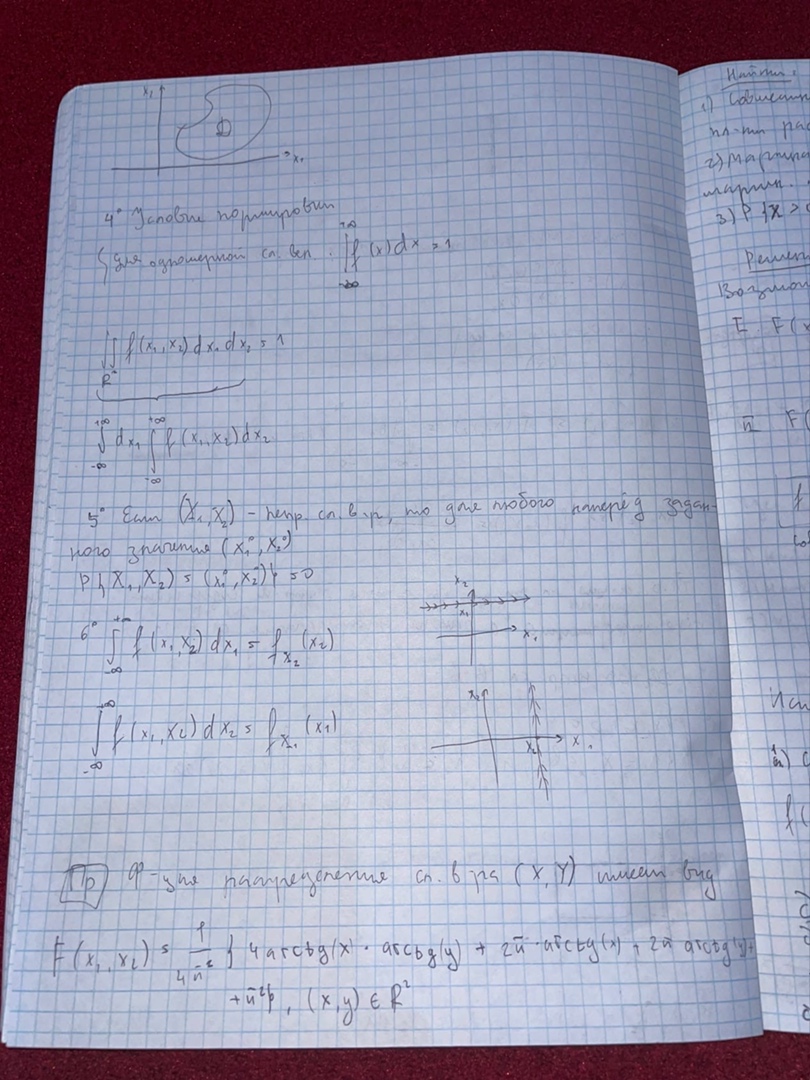 x₁
D
x₁
4° Условие нормировки
{для одномерной сл. вел. ∫_{-∞}^{+∞} f(x)dx = 1
∬_{R²} f(x₁,x₂)dx₁dx₂ = 1
∫_{-∞}^{+∞} dx₁ ∫_{-∞}^{+∞} f(x₁,x₂)dx₂
5° Если (X₁,X₂) - непр. сл. в.р, то для любого наперёд задан-
ного значения (x₁°, x₂°)
P{X₁,X₂) = (x₁°,x₂°)} = 0
6° ∫_{-∞}^{+∞} f(x₁,x₂)dx₁ = f_{X₂}(x₂)
x₂
x₁
x₁
∫_{-∞}^{+∞} f(x₁,x₂)dx₂ = f_{X₁}(x₁)
x₂
x₂
x₁
Пр Ф-ция распределения сл. в-ра (X,Y) имеет вид
F(x₁,x₂) = 1/4π² { 4arctg(x)·arctg(y) + 2π·arctg(x) + 2π arctg(y)+
+π²}, (x,y) ∈ R²
Найти:
1)
пл-ти рас
2) Марги
3) P{X >
Решен
Возмож
I F(
II F(
f
Исп
f(